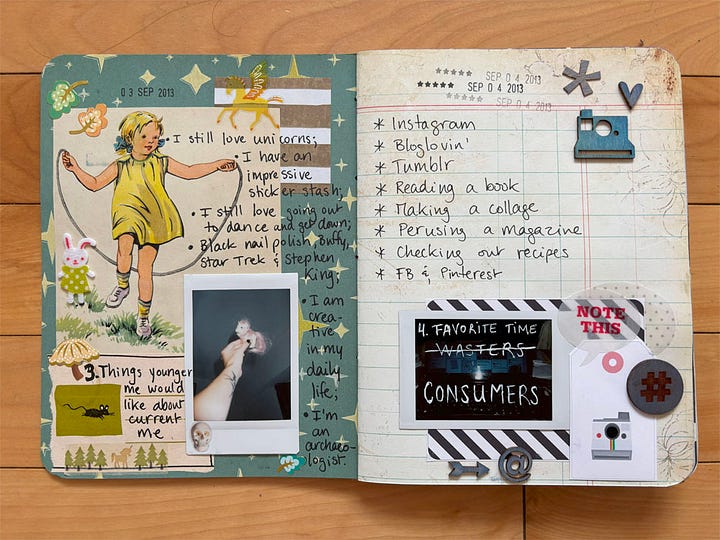 03 SEP 2013
• I still love unicorns;
• I have an
impressive
sticker stash;
• I still love going out
to dance and get down;
• Black nail polish, Buffy,
Star Trek & Stephen
King;
• I am
crea-
tive
in my
daily
life;
• I'm
an
archaeo-
logist.
3. Things younger
me would
like about
current
me
SEP 04 2013
SEP 04 2013
SEP 04 2013
* Instagram
* Bloglovin'
* Tumblr
* Reading a book
* Making a collage
* Perusing a magazine
* Checking out recipes
* FB & Pinterest
4. FAVORITE TIME
WASTERS
CONSUMERS
NOTE
THIS
#
@